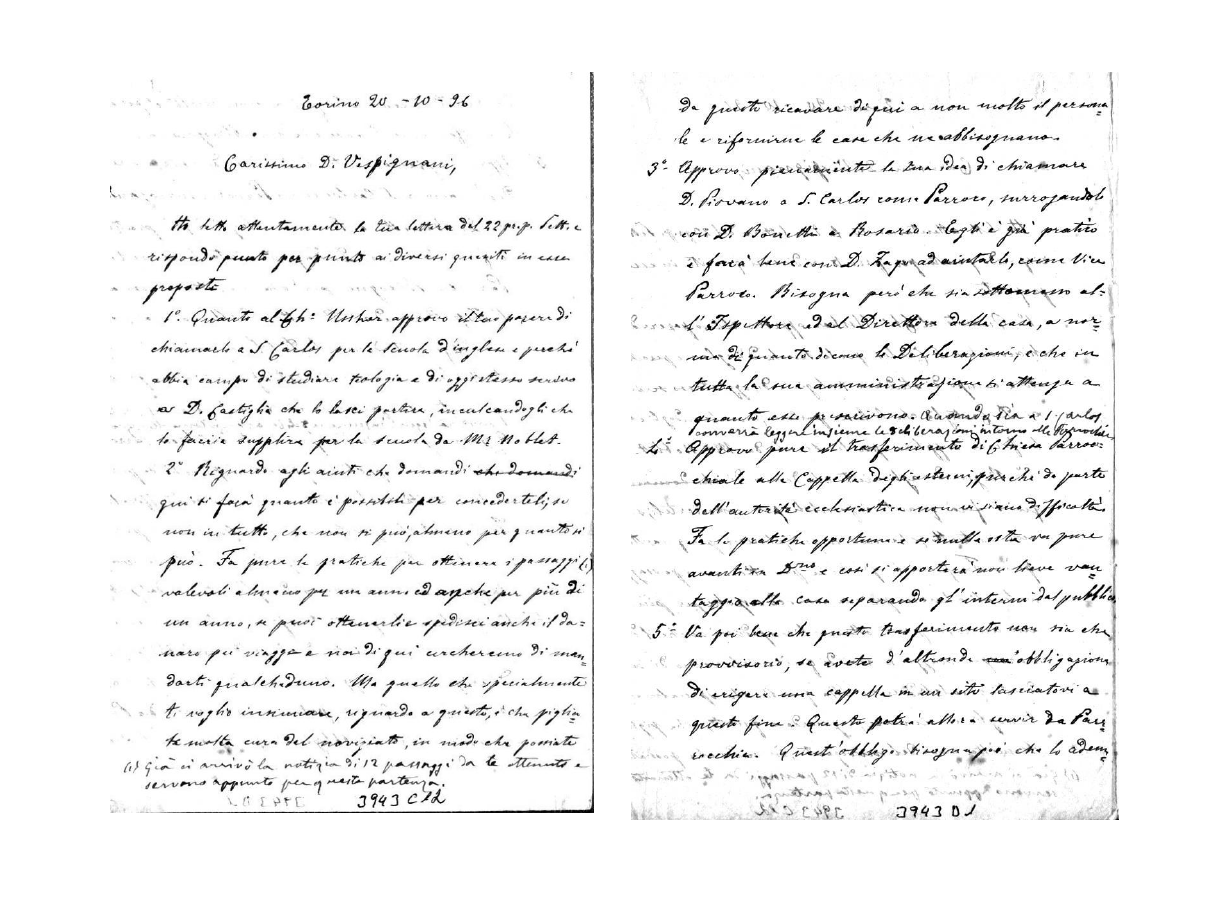 Torino 20 - 10 - 96
Carissimo D. Vespignani,
Ho letto attentamente la tua lettera del 22 p.p. Sett. e
rispondo punto per punto ai diversi quesiti in essa
proposti
1º. Quanto al Ch.º Ussher approvo il tuo parere di
chiamarlo a S. Carlos per la scuola d'inglese e perchè
abbia campo di studiare teologia e di oggi stesso scrivo
a D. Castiglia che lo lasci partire, inculcandogli che
lo faccia supplire per la scuola da Mr Noblet.
2º Riguardo agli aiuti che domandi che domandi
qui si farà quanto è possibile per concederteli; se
non in tutto, che non si può, almeno per quanto si
può. Fa pure le pratiche per ottenere i passaggi (1)
valevoli almeno per un anno ed anche per più di
un anno, se puoi ottenerli e spedisci anche il da=
naro pei viaggi e noi di qui cercheremo di man=
darti qualcheduno. Ma quello che specialmente
ti voglio insinuare, riguardo a questo, è che piglia=
te molta cura del noviziato, in modo che possiate
(1) Già ci arrivò la notizia di 12 passaggi da te ottenuto e
servono appunto per questa partenza.
3943 C 12
da questo ricavare di qui a non molto il persona=
le e rifornirne le case che ne abbisognano.
3º Approvo pienamente la tua idea di chiamare
D. Piovano a S. Carlos come Parroco, surrogandolo
con D. Bonetti a Rosario. Egli è già pratico
e farà bene con D. Zago ad aiutarlo, come Vice
Parroco. Bisogna però che sia sottomesso al=
l'Ispettore ed al Direttore della casa, a nor=
ma di quanto dicono le Deliberazioni, e che in
tutta la sua amministrazione si attenga a
quanto esse prescrivono. Quando sia a S. Carlos
converrà leggere insieme le deliberazioni intorno alle Parrocchie
4º Approvo pure il trasferimento di Chiesa Parroc=
chiale alla Cappella degli esterni, purchè da parte
dell'autorità ecclesiastica non vi siano difficoltà.
Fa le pratiche opportune e se nulla osta va pure
avanti in Dno e così si apporterà non lieve van=
taggio alla casa separando gl'interni dal pubblico
5º Va poi bene che questo trasferimento non sia che
provvisorio, se avete d'altronde un'obbligazione
di erigere una cappella in un sito lasciatovi a
questo fine. Questo potrà allora servir da Par=
rocchia. Quest'obbligo bisogna poi che lo adem=
3943 D 1